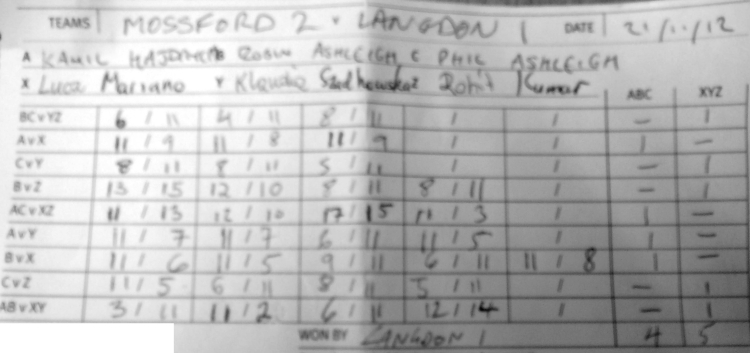 TEAMS MOSSFORD 2 v LANGDON 1 DATE 21/11/12
A KAMIL ASHLEIGH C PHIL ASHLEIGH
X Luca Mariano Y Klaudia Z Rohit Kumar
ABC XYZ
BCvYZ 6 / 11 4 / 11 8 / 11 / / — 1
AvX 11 / 9 11 / 8 11 / 9 / / 1 —
CvY 8 / 11 8 / 11 5 / 11 / / — 1
BvZ 13 / 15 12 / 10 8 / 11 8 / 11 / — 1
ACvXZ 11 / 13 12 / 10 17 / 15 11 / 3 / 1 —
AvY 11 / 7 11 / 7 6 / 11 11 / 5 / 1 —
BvX 11 / 6 11 / 5 9 / 11 6 / 11 11 / 8 1 —
CvZ 11 / 5 6 / 11 8 / 11 5 / 11 / — 1
ABvXY 3 / 11 11 / 2 6 / 11 12 / 14 / — 1
WON BY LANGDON 1 4 5